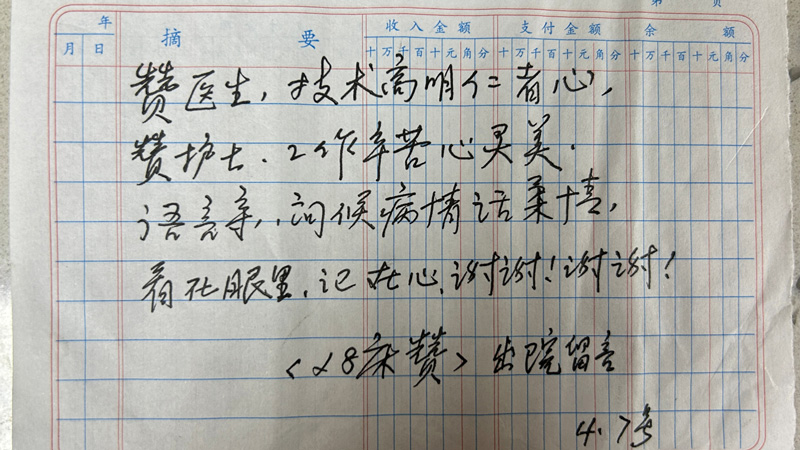 第 页
年 摘 要 收入金额 支付金额 余 额
月 日 十万千百十元角分 十万千百十元角分 十万千百十元角分
赞医生,技术高明仁者心,
赞护士.工作辛苦心灵美.
语言亲,问候病情话柔情,
看在眼里,记在心,谢谢!谢谢!
<28床赞>出院留言
4.7号